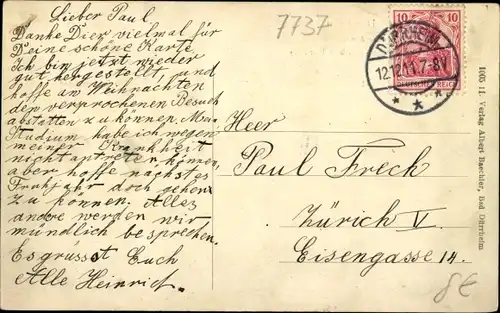 Lieber Paul
Danke Dier vielmal für
Deine schöne Karte.
Ich bin jetzt wieder
gut hergestellt, und
hoffe am Weihnachten
den versprochenen Besuch
abstatten zu können. Mein
Studium habe ich wegen
meiner Krankheit
nicht antreten können,
aber hoffe nächstes
Frühjahr doch gehen
zu können. Alles
andre werden wir
mündlich besprechen.
Es grüsst Euch
Alle Heinrich.
7737
10 10
DÜRRHEIM
12.12.11. 7-8V.
DEUTSCHES REICH
Heer
Paul Freck
Zürich V
Eisengasse 14.
11. Verlag Albert Baechler, Bad Dürrheim
8€